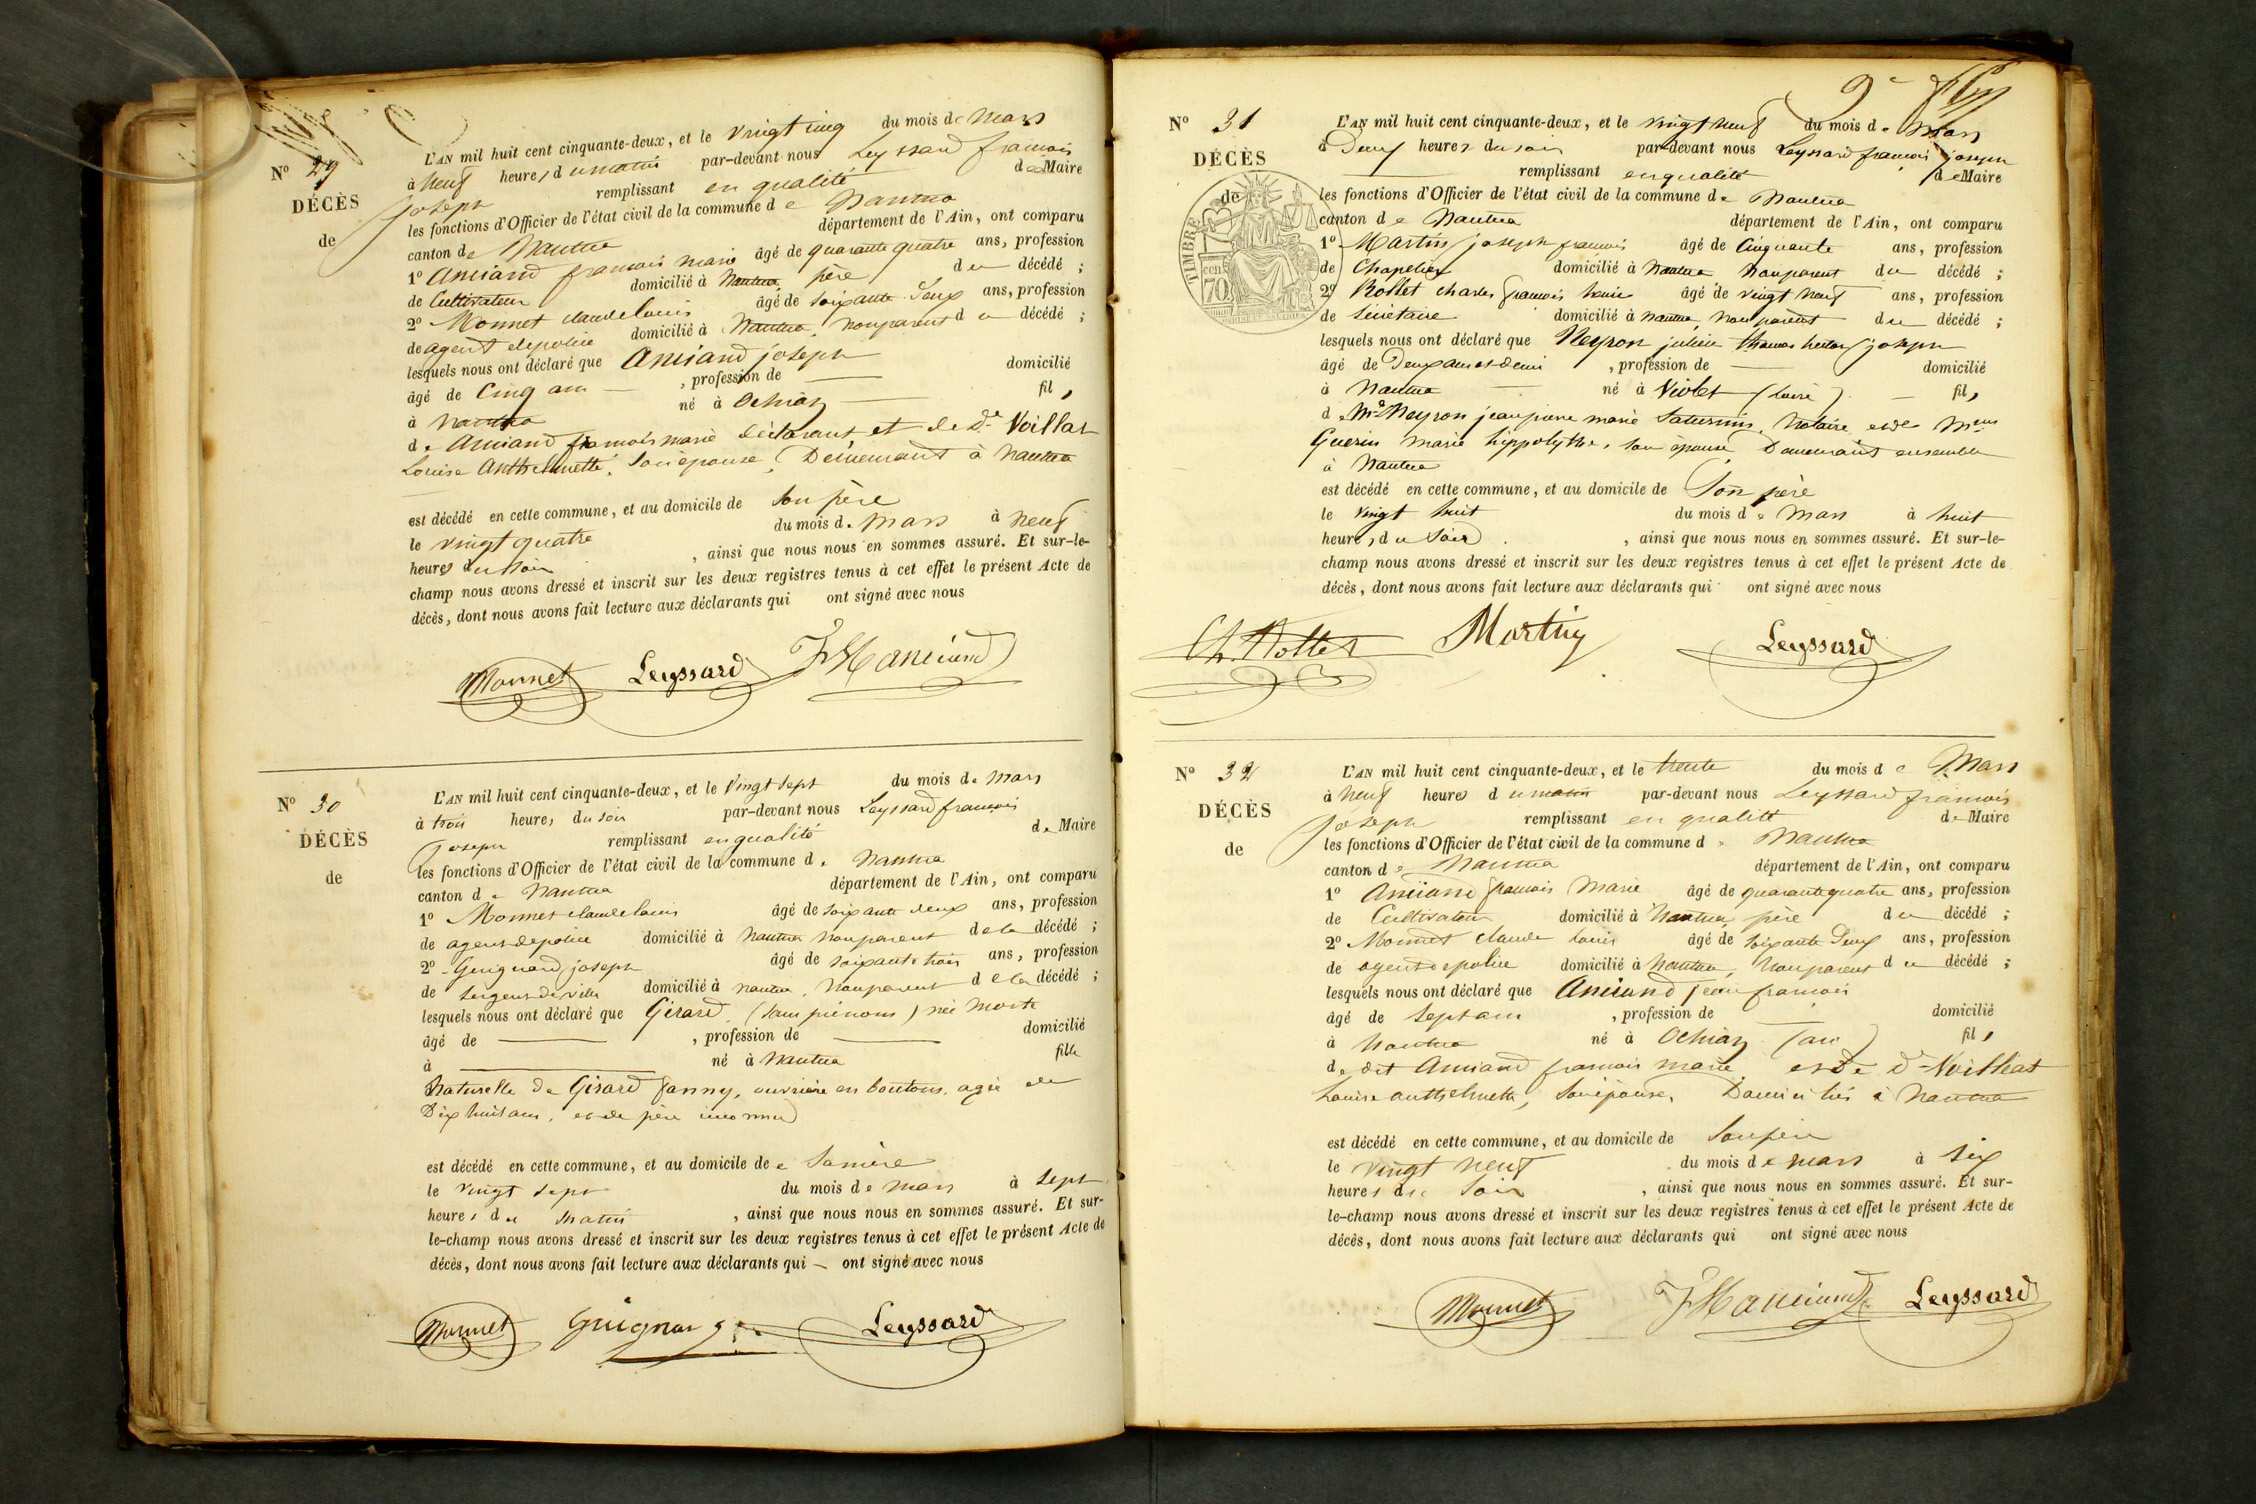 N° 29
DÉCÈS
de
L'AN mil huit cent cinquante-deux, et le vingt cinq du mois de Mars
à Neuf heures du matin par-devant nous Leyssard françois
joseph remplissant en qualité de Maire
les fonctions d'Officier de l'état civil de la commune de Nantua
canton de Nantua département de l'Ain, ont comparu
1° Amiand françois marie âgé de quarante quatre ans, profession
de Cultivateur domicilié à Nantua, père du décédé ;
2° Monnet claude louis âgé de soixante Deux ans, profession
de agent de police domicilié à Nantua, non parent du décédé ;
lesquels nous ont déclaré que Amiand joseph
âgé de Cinq ans , profession de domicilié
à Nantua né à Ochiaz fils
de Amiand françois marie déclarant et de De Voillat
Louise Anthelmette, son épouse, Demeurant à Nantua
est décédé en cette commune, et au domicile de Son père
le vingt quatre du mois de Mars à Neuf
heures du soir , ainsi que nous nous en sommes assuré. Et sur-le-
champ nous avons dressé et inscrit sur les deux registres tenus à cet effet le présent Acte de
décès, dont nous avons fait lecture aux déclarants qui ont signé avec nous
Monnet Leyssard FM amiand
N° 30
DÉCÈS
de
L'AN mil huit cent cinquante-deux, et le Vingt sept du mois de Mars
à trois heures du soir par-devant nous Leyssard françois
joseph remplissant en qualité de Maire
les fonctions d'Officier de l'état civil de la commune de Nantua
canton de Nantua département de l'Ain, ont comparu
1° Monnet claude louis âgé de soixante deux ans, profession
de agent de police domicilié à Nantua non parent de la décédé ;
2° Guignard joseph âgé de soixante trois ans, profession
de sergent de ville domicilié à nantua, non parent de la décédé ;
lesquels nous ont déclaré que Girard (sans prénoms) née morte
âgé de , profession de domicilié
à né à Nantua fille
Naturelle de Girard fanny, ouvrière en boutons, agée de
Dix huit ans, et de père inconnu
est décédé en cette commune, et au domicile de Sa mère
le vingt sept du mois de Mars à sept
heures du matin , ainsi que nous nous en sommes assuré. Et sur-
le-champ nous avons dressé et inscrit sur les deux registres tenus à cet effet le présent Acte de
décès, dont nous avons fait lecture aux déclarants qui ont signé avec nous
Monnet Guignard Leyssard
N° 31
DÉCÈS
de
TIMBRE
cen
70
L'AN mil huit cent cinquante-deux, et le vingt neuf du mois de Mars
à Deux heures du soir par-devant nous Leyssard françois joseph
remplissant en qualité de Maire
les fonctions d'Officier de l'état civil de la commune de Nantua
canton de Nantua département de l'Ain, ont comparu
1° Martin joseph françois âgé de Cinquante ans, profession
de Chapelier domicilié à Nantua Non parent du décédé ;
2° Rollet charles françois âgé de vingt neuf ans, profession
de Secrétaire domicilié à nantua, non parent du décédé ;
lesquels nous ont déclaré que Neyron julien thomas hector joseph
âgé de Deux ans et demi , profession de domicilié
à Nantua né à Violet (Loire) fils
de Mr Neyron jean pierre marie Saturnin, Notaire et de
Guerin marie hippolythe, son épouse, Demeurant ensemble
à Nantua
est décédé en cette commune, et au domicile de Son père
le vingt huit du mois de Mars à huit
heures du Soir , ainsi que nous nous en sommes assuré. Et sur-le-
champ nous avons dressé et inscrit sur les deux registres tenus à cet effet le présent Acte de
décès, dont nous avons fait lecture aux déclarants qui ont signé avec nous
Ch. Rollet Martin Leyssard
N° 32
DÉCÈS
de
L'AN mil huit cent cinquante-deux, et le trente du mois de Mars
à Neuf heures du matin par-devant nous Leyssard françois
joseph remplissant en qualité de Maire
les fonctions d'Officier de l'état civil de la commune de Nantua
canton de Nantua département de l'Ain, ont comparu
1° Amiand françois Marie âgé de quarante quatre ans, profession
de Cultivateur domicilié à Nantua, père du décédé ;
2° Monnet claude louis âgé de soixante Deux ans, profession
de agent de police domicilié à Nantua, Non parent du décédé ;
lesquels nous ont déclaré que Amiand jean françois
âgé de Sept ans , profession de domicilié
à Nantua né à Ochiaz (ain) fils
de dit Amiand françois marie et de De Voilliat
Louise anthelmette, son épouse, Domiciliés à Nantua
est décédé en cette commune, et au domicile de Son père
le vingt neuf du mois de Mars à Six
heures du Soir , ainsi que nous nous en sommes assuré. Et sur-
le-champ nous avons dressé et inscrit sur les deux registres tenus à cet effet le présent Acte de
décès, dont nous avons fait lecture aux déclarants qui ont signé avec nous
Monnet FM amiand Leyssard